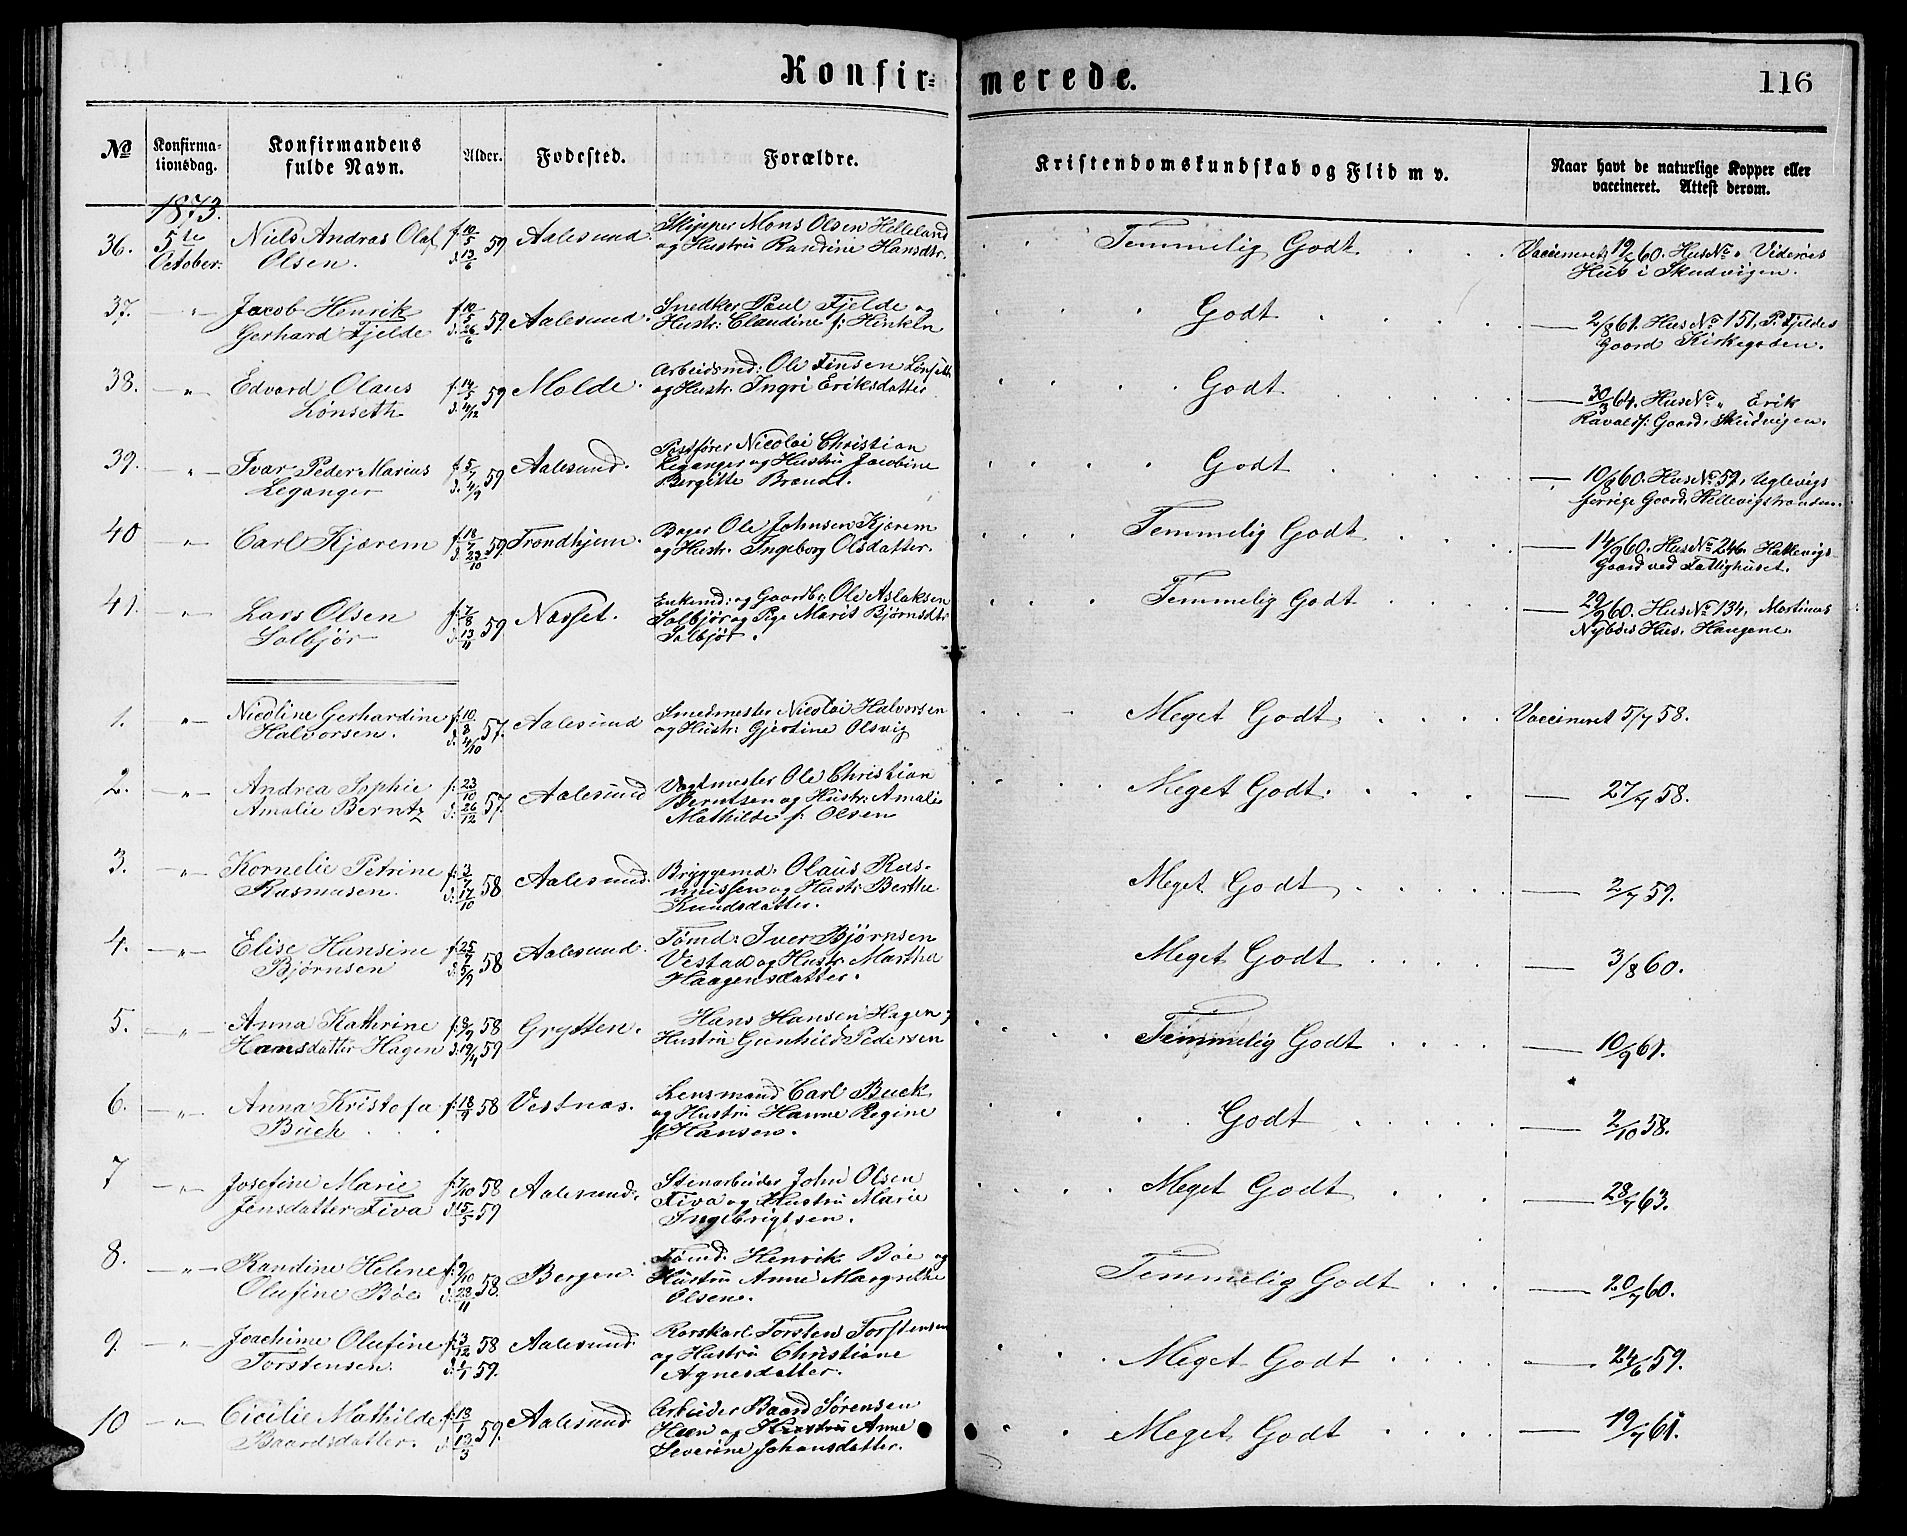 Konfir=
merede.
116
No
Konfirma-
tionsdag.
Konfirmandens
fulde Navn.
Alder.
Fodested.
Forældre.
Kristendomskundskab og Flid m v.
Naar havt de naturlige Kopper eller
vaccineret. Attest derom.
1873.
36. 5te October. Niels Andras Olaf f. 10/5 59 Aalesund. Skipper Mons Olsen Helleland Temmelig Godt. Vaccineret 19/ 60. Hus No „
Olsen. d. 13/6 og Hustru Randine Hansdtr. Hus i Skudvigen.
37. „ Jacob Henrik f. 10/5 59. Aalesund. Snedker Paul Fjelde og Godt — 2/8 61. Hus No 151, P. Fjeldes
Gerhard Fjelde d. 26/6 Hustr: Claudine f: Hinkeln Gaard Kirkegaden.
38. „ Edvard Olaus f. 14/5 59 Molde. Arbeidsmd: Ole Finsen Lønseth Godt — 30/3 64. Hus No „ Erik
Lønseth d. 4/12 og Hustr. Ingri Eriksdatter Gaard. Skudvigen.
39. „ Ivar Peder Marius f. 5/7 59 Aalesund. Postfører Nicolai Christian Godt — 10/8 60. Hus No 59, Uglevigs
Leganger d. 4/9 Leganger og Hustru Jacobine
Bergitte Brandt.
40 „ Carl Kjærem f. 18/7 59. Trondhjem. Bager Ole Johnsen Kjærem Temmelig Godt — 14/9 60. Hus No 246. Hatlevigs
d. 23/10 og Hustr. Ingeborg Olsdatter. Gaard ved Fattighuset.
41. „ Lars Olsen f. 7/8 59 Nasset. Enkemd: og Gaardbr: Ole Aslaksen Temmelig Godt — 29/9 60. Hus No 134, Martinus
Solbjør d. 13/11 Solbjør og Pige Marit Bjørnsdtr. Hus. Haugene.
Solbjør.
1. „ Nicoline Gerhardine f. 10/8 57. Aalesund Smedmester Nicolai Halvorsen Meget Godt. Vaccineret 5/7 58.
Halvorsen. d. 4/10 og Hustr: Gjertine Olsvig
2. „ Andrea Sophie f. 23/10 57. Aalesund Vagtmester Ole Christian Meget Godt. — 27/7 58.
Amalie Berntz d. 26/12 Berntsen og Hustr: Amalie
Mathilde f: Olsen
3. „ Kornelie Petrine f. 3/7 58 Aalesund. Bryggemd. Olaus Ras- Meget Godt — 2/7 59.
Rasmusen. d. 17/10 mussen og Hustr: Berthe
Knudsdatter.
4. „ Elise Hansine f. 25/7 58 Aalesund. Tømd: Iver Bjørnsen Meget Godt — 3/8 60.
Bjørnsen d. 5/9 Vestad og Hustr: Martha
Haagensdatter.
5. „ Anna Kathrine f. 8/9 58 Grytten. Hans Hansen Hagen og Temmelig Godt — 10/9 61.
Hansdatter Hagen d. 19/4 59 Hustru Gunhild Pedersen
6. „ Anna Kristofa f. 18/9 58 Vestnas. Lensmand Carl Buck Godt — 2/10 58.
Buck og Hustru Hanne Regine
f Hansen.
7 „ Josefine Marie f. 7/10 58 Aalesund. Stenarbeider John Olsen Meget Godt — 28/7 63.
Jensdatter Fiva d. 15/5 59 Fiva og Hustru Marie
Ingebrigtsen.
8. „ Randine Helene f. 9/10 58. Bergen. Tømd. Henrik Böe og Temmelig Godt — 20/7 60.
Olufine Böe d. 28/11 Hustru Anne Margrethe
Olsen.
9. „ Joachime Olufine f. 3/12 58 Aalesund. Rorskarl Torsten Torstensen Meget Godt — 24/6 59.
Torstensen. d. 1/1 59. og Hustru Christiane
Agnesdatter.
10 „ Cicilie Mathilde f. 13/1 59. Aalesund. Arbeider Baard Sørensen Meget Godt — 19/7 61.
Baardsdatter. d. 13/3 Huen og Hustru Anne
Severine Johansdatter.